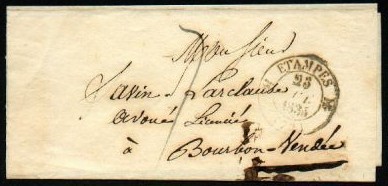 Monsieur
Savin-Larclause
avoué Licencié
à Bourbon-Vendée
ETAMPES
23
1835